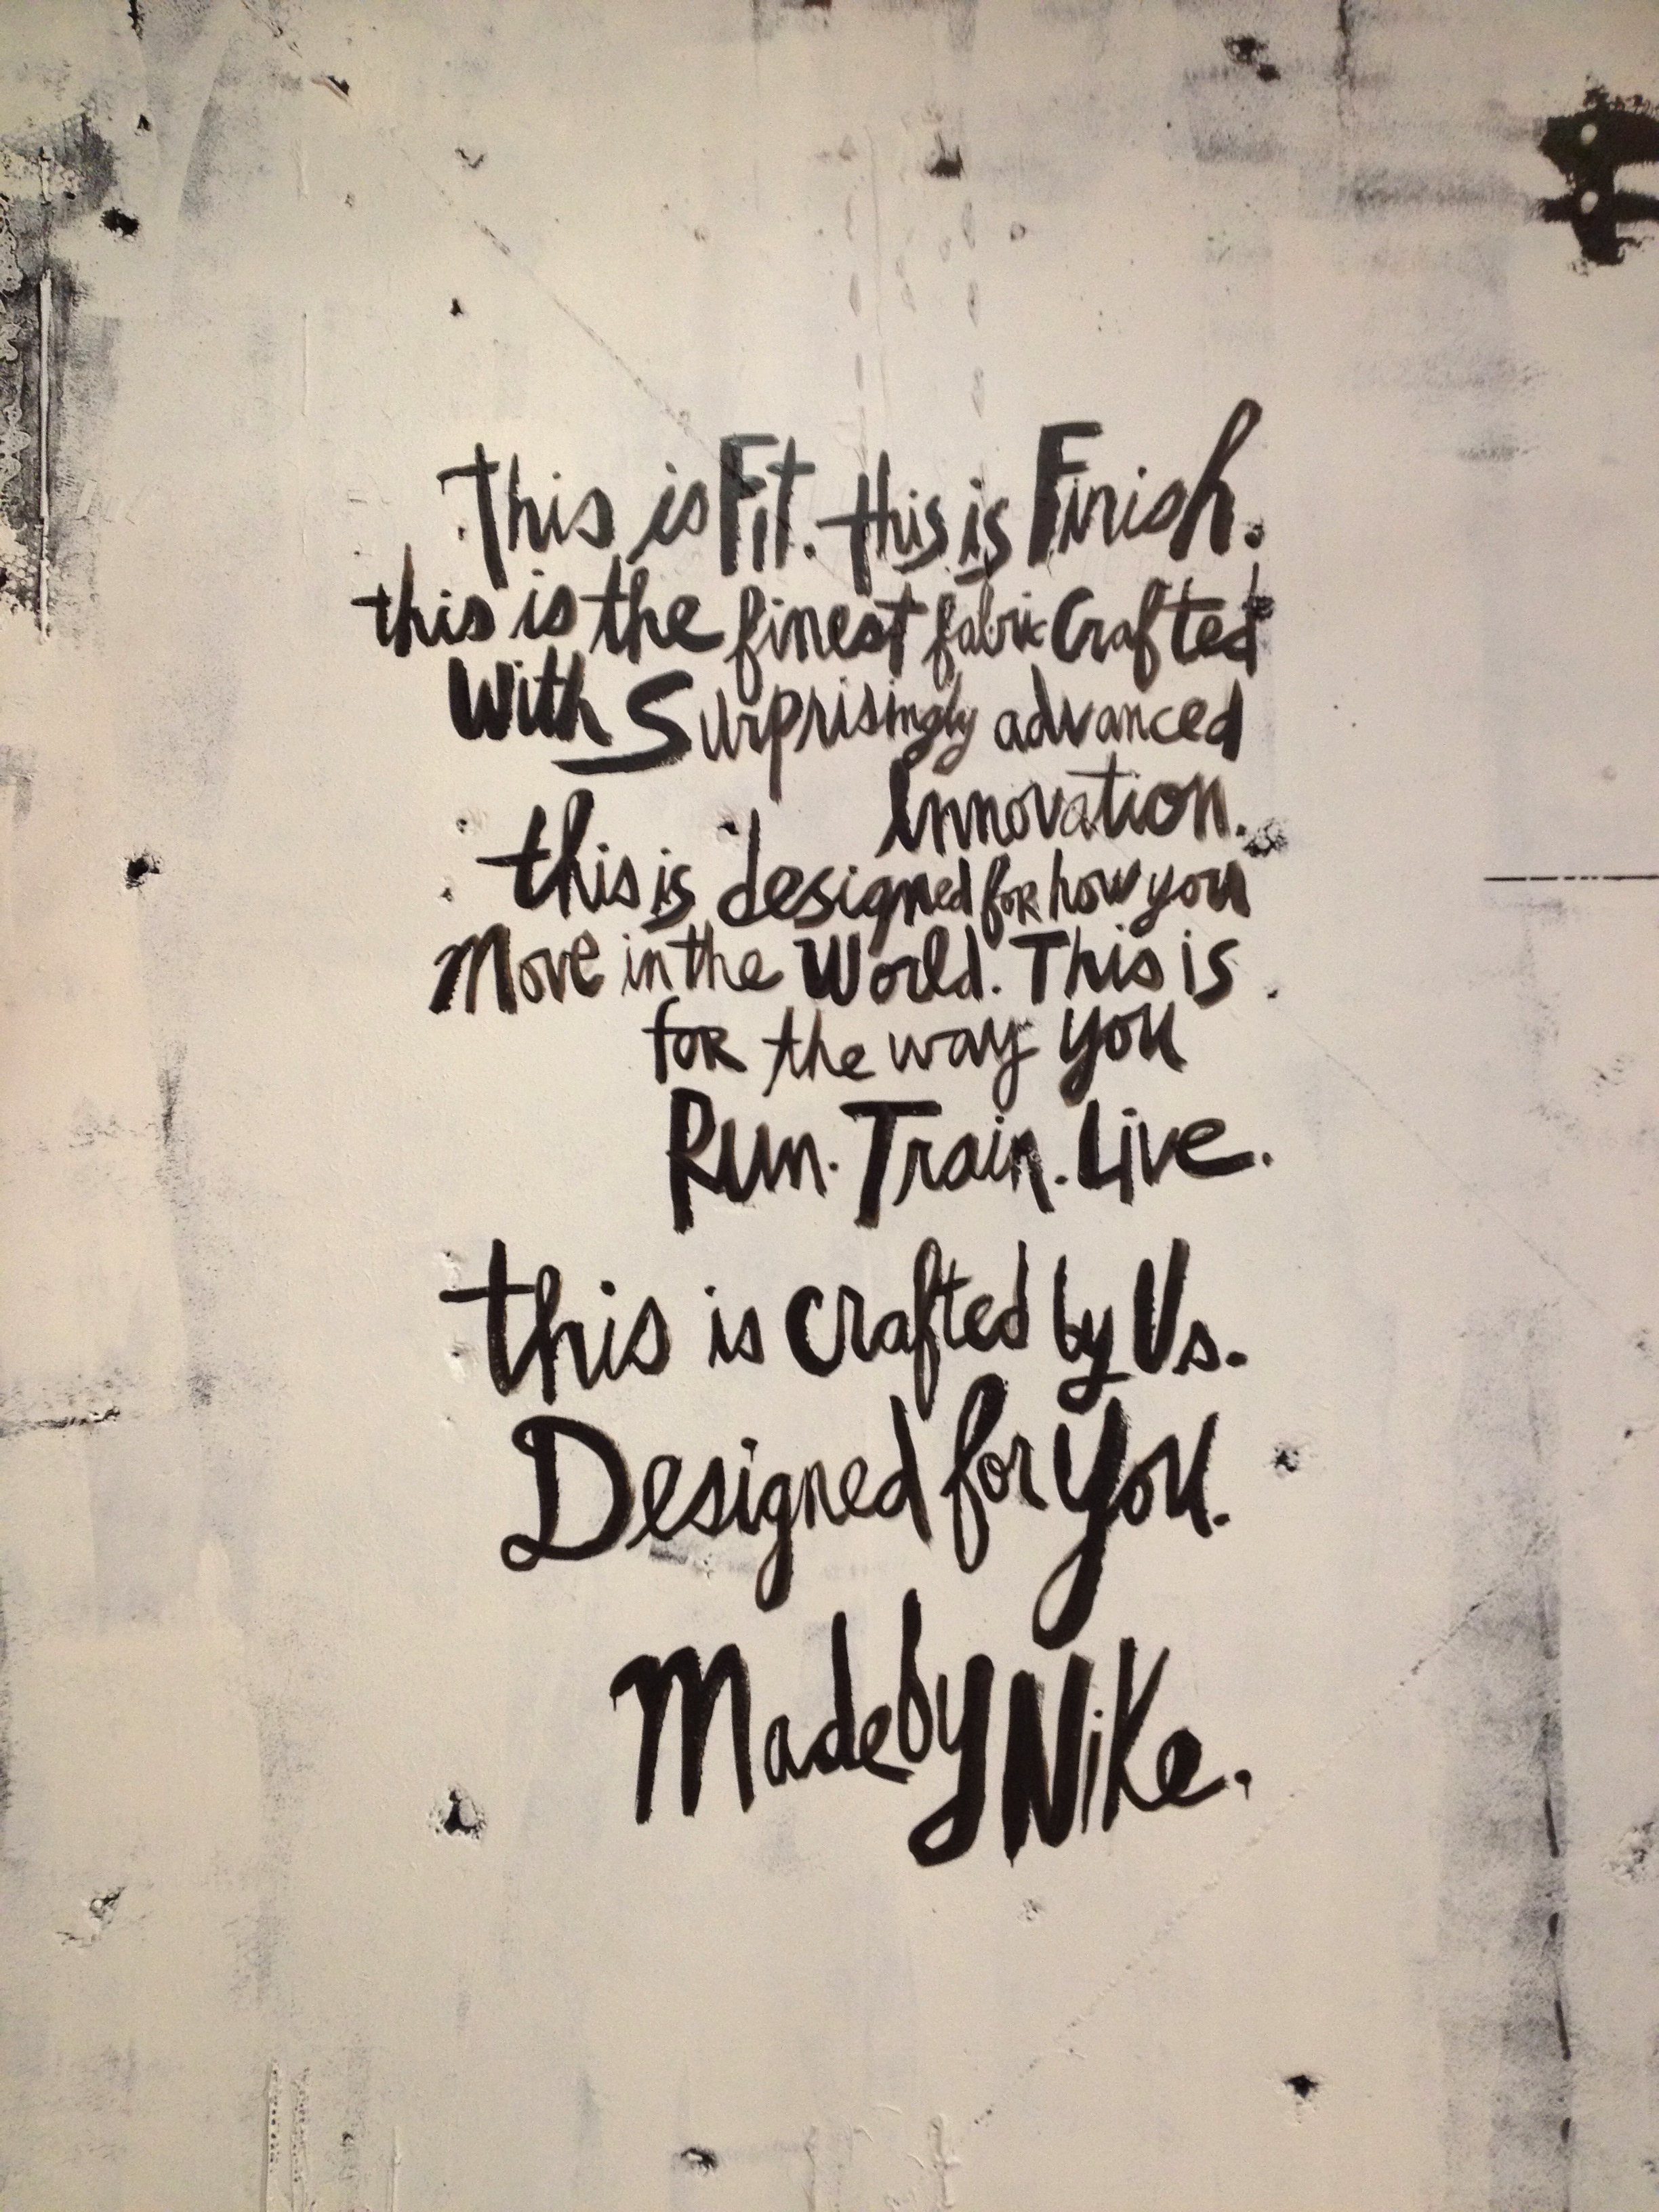 this is Fit. this is Finish.
this is the finest fabric Crafted
With Surprisingly advanced
Innovation.
this is designed for how you
Move in the World. This is
for the way you
Run. Train. Live.
this is crafted by Us.
Designed for You.
Made by Nike.